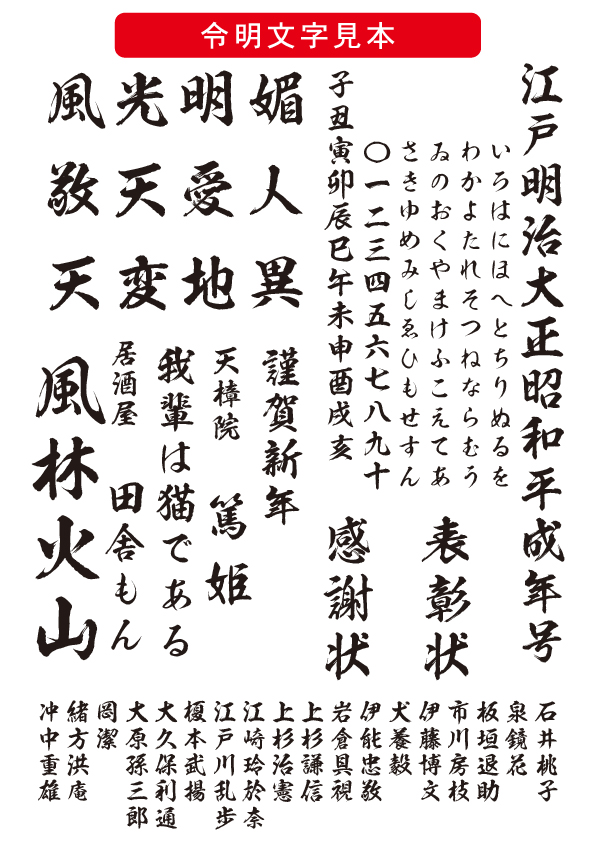 令明文字見本
江戸明治大正昭和平成年号
いろはにほへとちりぬるを
わかよたれそつねならむう
ゐのおくやまけふこえてあ
さきゆめみしゑひもせすん
〇一二三四五六七八九十
子丑寅卯辰巳午未申酉戌亥
表彰状
感謝状
媚人異
明愛地
光天変
風敬天
謹賀新年
天樟院
篤姫
我輩は猫である
居酒屋
田舎もん
風林火山
石井桃子
泉鏡花
板垣退助
市川房枝
伊藤博文
犬養毅
伊能忠敬
岩倉具視
上杉謙信
上杉治憲
江崎玲於奈
江戸川乱歩
榎本武揚
大久保利通
大原孫三郎
岡潔
緒方洪庵
冲中重雄